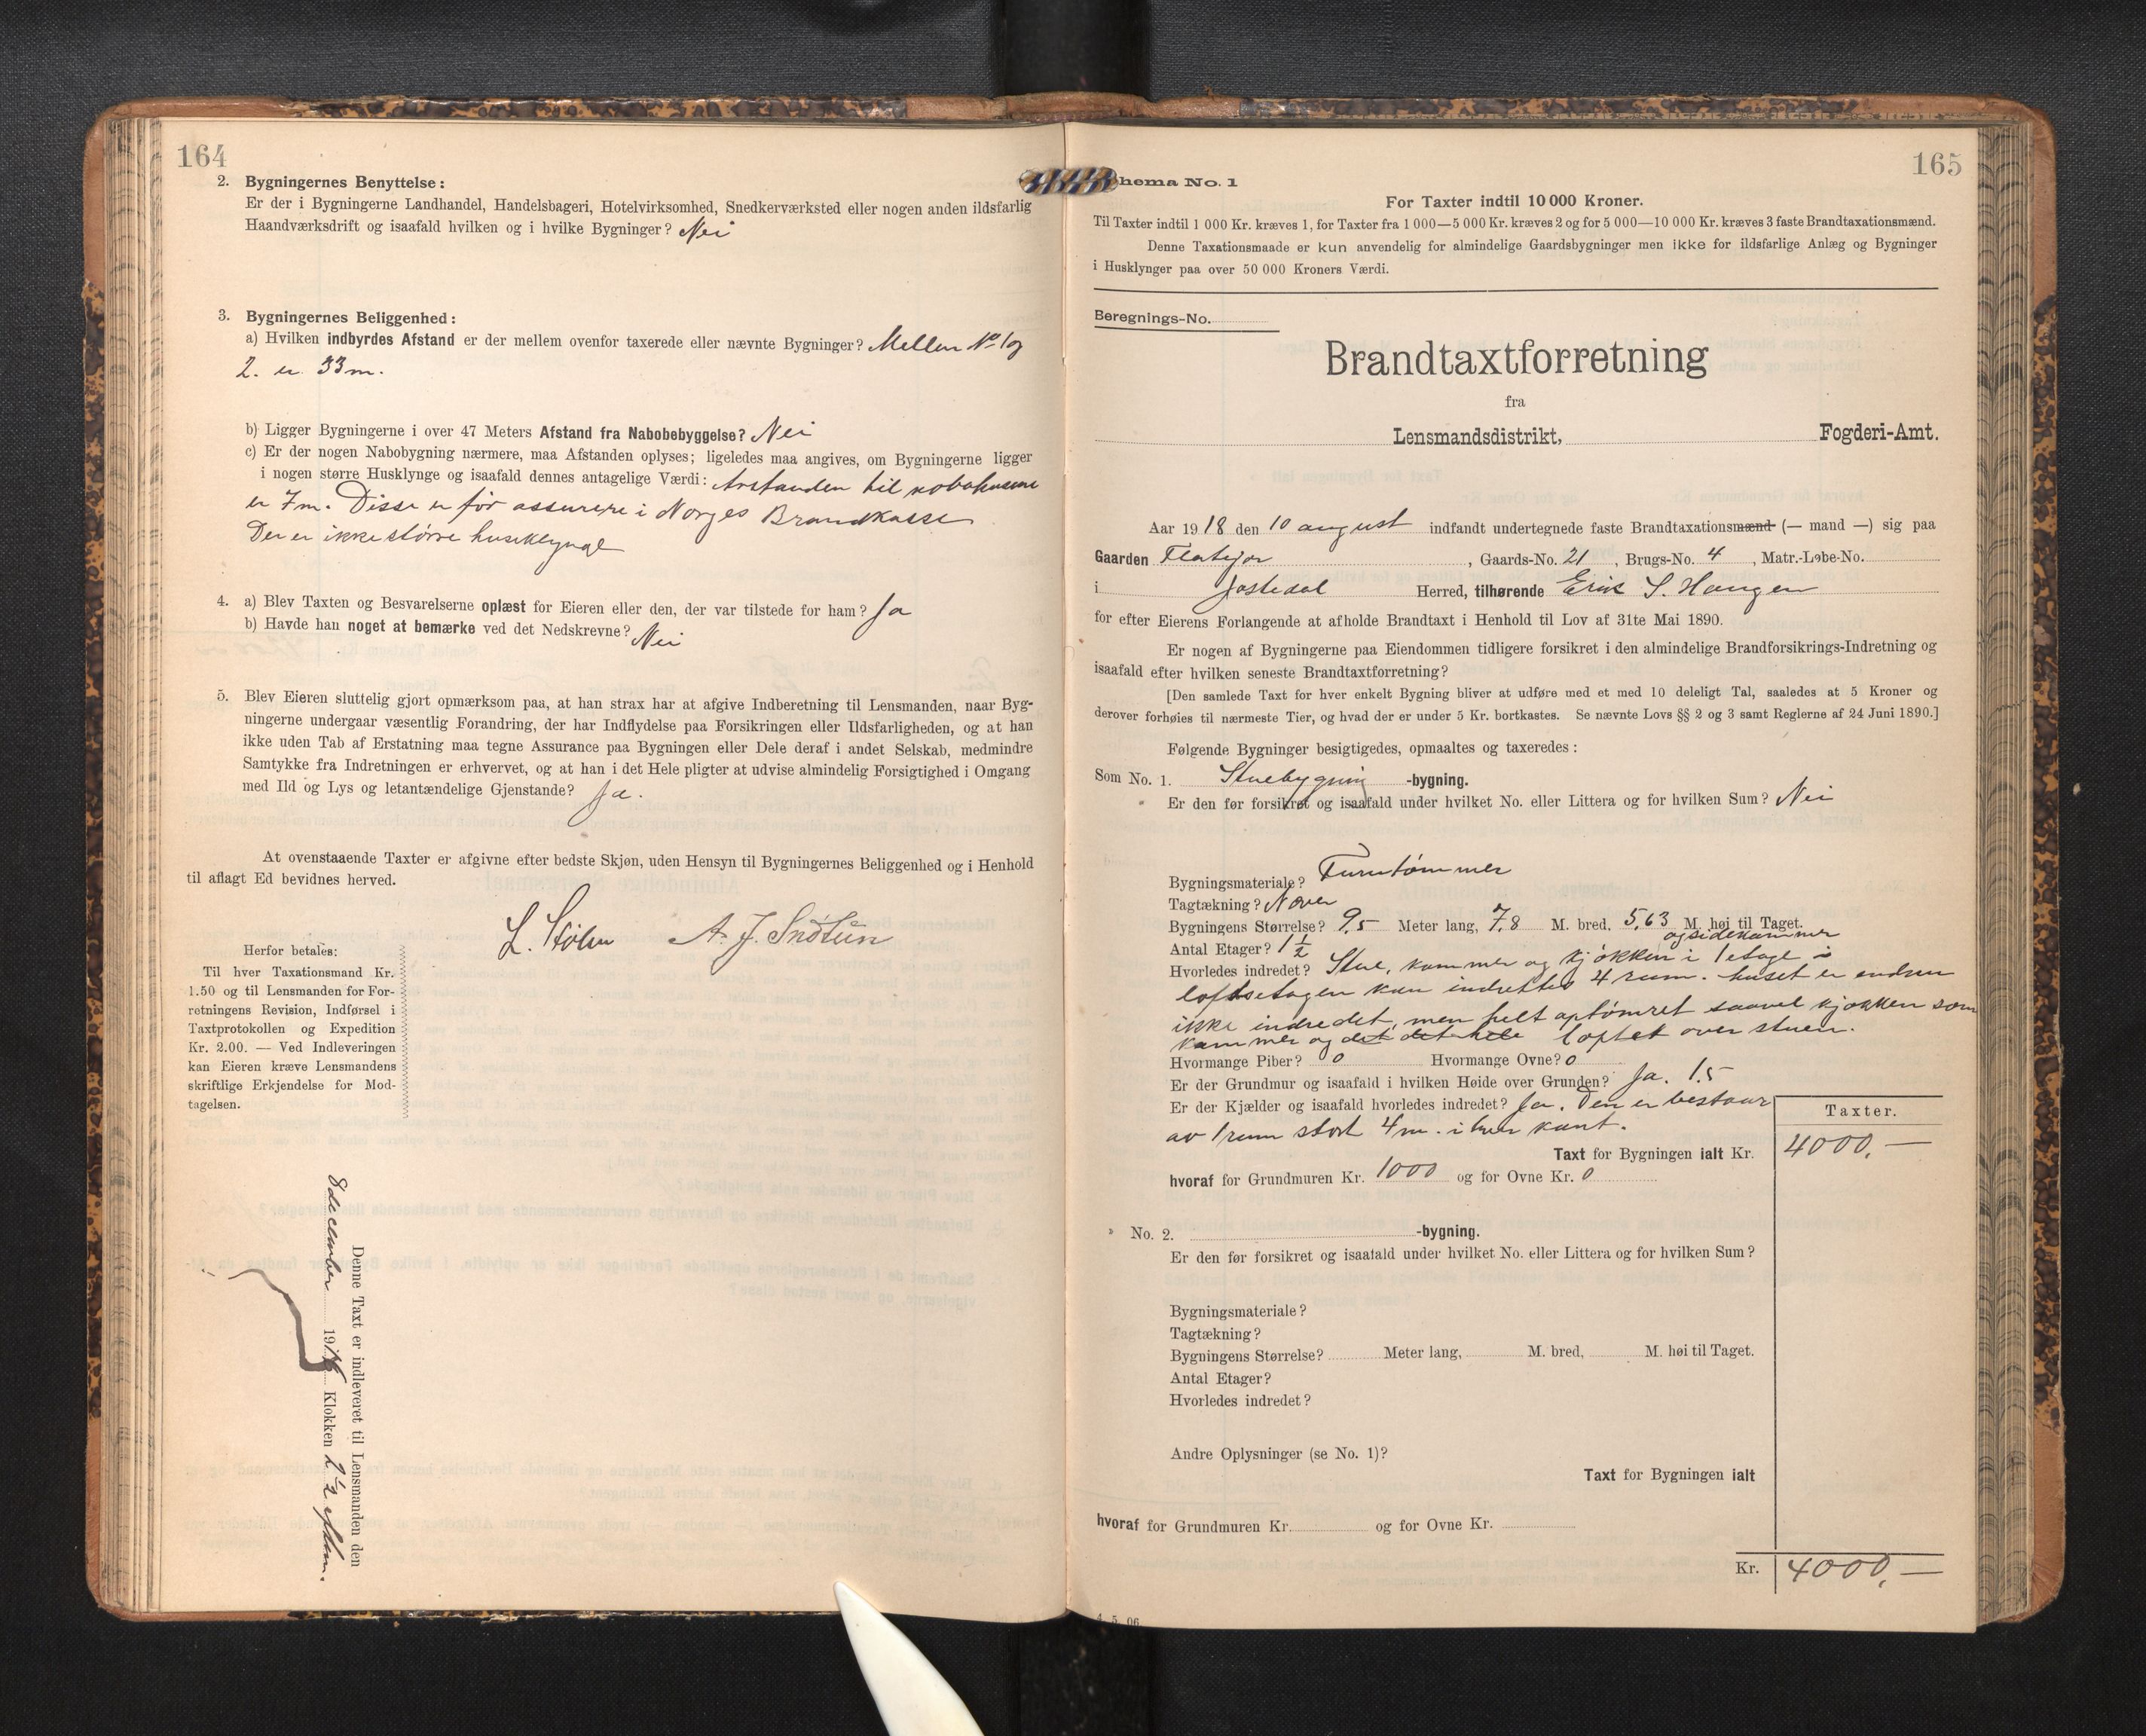 164
2. Bygningernes Benyttelse:
Er der i Bygningerne Landhandel, Handelsbageri, Hotelvirksomhed, Snedkerværksted eller nogen anden ildsfarlig
Haandværksdrift og isaafald hvilken og i hvilke Bygninger? Nei
3. Bygningernes Beliggenhed:
a) Hvilken indbyrdes Afstand er der mellem ovenfor taxerede eller nævnte Bygninger? Mellem No 1 og
2. er 33 m.
b) Ligger Bygningerne i over 47 Meters Afstand fra Nabobebyggelse? Nei
c) Er der nogen Nabobygning nærmere, maa Afstanden oplyses; ligeledes maa angives, om Bygningerne ligger
i nogen større Husklynge og isaafald dennes antagelige Værdi: Avstanden til nabohusene
er 7 m. Disse er før assurere i Norges Brandkasse
Der er ikke større huseklynge
4. a) Blev Taxten og Besvarelserne oplæst for Eieren eller den, der var tilstede for ham? Ja
b) Havde han noget at bemærke ved det Nedskrevne? Nei
5. Blev Eieren sluttelig gjort opmærksom paa, at han strax har at afgive Indberetning til Lensmanden, naar Byg-
ningerne undergaar væsentlig Forandring, der har Indflydelse paa Forsikringen eller Ildsfarligheden, og at han
ikke uden Tab af Erstatning maa tegne Assurance paa Bygningen eller Dele deraf i andet Selskab, medmindre
Samtykke fra Indretningen er erhvervet, og at han i det Hele pligter at udvise almindelig Forsigtighed i Omgang
med Ild og Lys og letantændelige Gjenstande? Ja.
At ovenstaaende Taxter er afgivne efter bedste Skjøn, uden Hensyn til Bygningernes Beliggenhed og i Henhold
til aflagt Ed bevidnes herved.
L. Stølen A. J. Snøtun
Herfor betales:
Til hver Taxationsmand Kr.
1.50 og til Lensmanden for For-
retningens Revision, Indførsel i
Taxtprotokollen og Expedition
Kr. 2.00. — Ved Indleveringen
kan Eieren kræve Lensmandens
skriftlige Erkjendelse for Mod-
tagelsen.
Denne Taxt er indleveret til Lensmanden den
8 december 191 Klokken 2 1/2 eftm.
165
hema No. 1
For Taxter indtil 10 000 Kroner.
Til Taxter indtil 1 000 Kr. kræves 1, for Taxter fra 1 000—5 000 Kr. kræves 2 og for 5 000—10 000 Kr. kræves 3 faste Brandtaxationsmænd.
Denne Taxationsmaade er kun anvendelig for almindelige Gaardsbygninger men ikke for ildsfarlige Anlæg og Bygninger
i Husklynger paa over 50 000 Kroners Værdi.
Beregnings-No.
Brandtaxtforretning
fra
Lensmandsdistrikt, Fogderi-Amt.
Aar 1918 den 10 august indfandt undertegnede faste Brandtaxationsmænd (— mand —) sig paa
Gaarden , Gaards-No. 21 , Brugs-No. 4 , Matr.-Løbe-No.
i Jostedal Herred, tilhørende Erik S. Haugen
for efter Eierens Forlangende at afholde Brandtaxt i Henhold til Lov af 31te Mai 1890.
Er nogen af Bygningerne paa Eiendommen tidligere forsikret i den almindelige Brandforsikrings-Indretning og
isaafald efter hvilken seneste Brandtaxtforretning?
[Den samlede Taxt for hver enkelt Bygning bliver at udføre med et med 10 deleligt Tal, saaledes at 5 Kroner og
derover forhøies til nærmeste Tier, og hvad der er under 5 Kr. bortkastes. Se nævnte Lovs §§ 2 og 3 samt Reglerne af 24 Juni 1890.]
Følgende Bygninger besigtigedes, opmaaltes og taxeredes:
Som No. 1. Stuebygning -bygning.
Er den før forsikret og isaafald under hvilket No. eller Littera og for hvilken Sum? Nei
Bygningsmateriale? Furutømmer
Tagtækning? Never
Bygningens Størrelse? 9.5 Meter lang, 7.8 M. bred, 5,63 M. høi til Taget.
og sidekammer
Antal Etager? 1 1/2
Hvorledes indredet? Stue, kammer og kjøkken i 1 etage i
loftsetagen kan indrettes 4 rum. huset er endnu
ikke indredet, men helt optømret saavel kjøkken som
kammer og det det hele loftet over stuen.
Hvormange Piber? 0 Hvormange Ovne? 0
Er der Grundmur og isaafald i hvilken Høide over Grunden? Ja. 1.5
Er der Kjælder og isaafald hvorledes indredet? Ja. Den er bestaar
av 1 rum stort 4 m. i hver kant.
Taxter.
Taxt for Bygningen ialt Kr. 4000.—
hvoraf for Grundmuren Kr. 1000 og for Ovne Kr. 0
» No. 2. -bygning.
Er den før forsikret og isaafald under hvilket No. eller Littera og for hvilken Sum?
Bygningsmateriale?
Tagtækning?
Bygningens Størrelse? Meter lang, M. bred, M. høi til Taget.
Antal Etager?
Hvorledes indredet?
Andre Oplysninger (se No. 1)?
Taxt for Bygningen ialt
hvoraf for Grundmuren Kr. og for Ovne Kr.
Kr. 4000.—
4. 5. 06